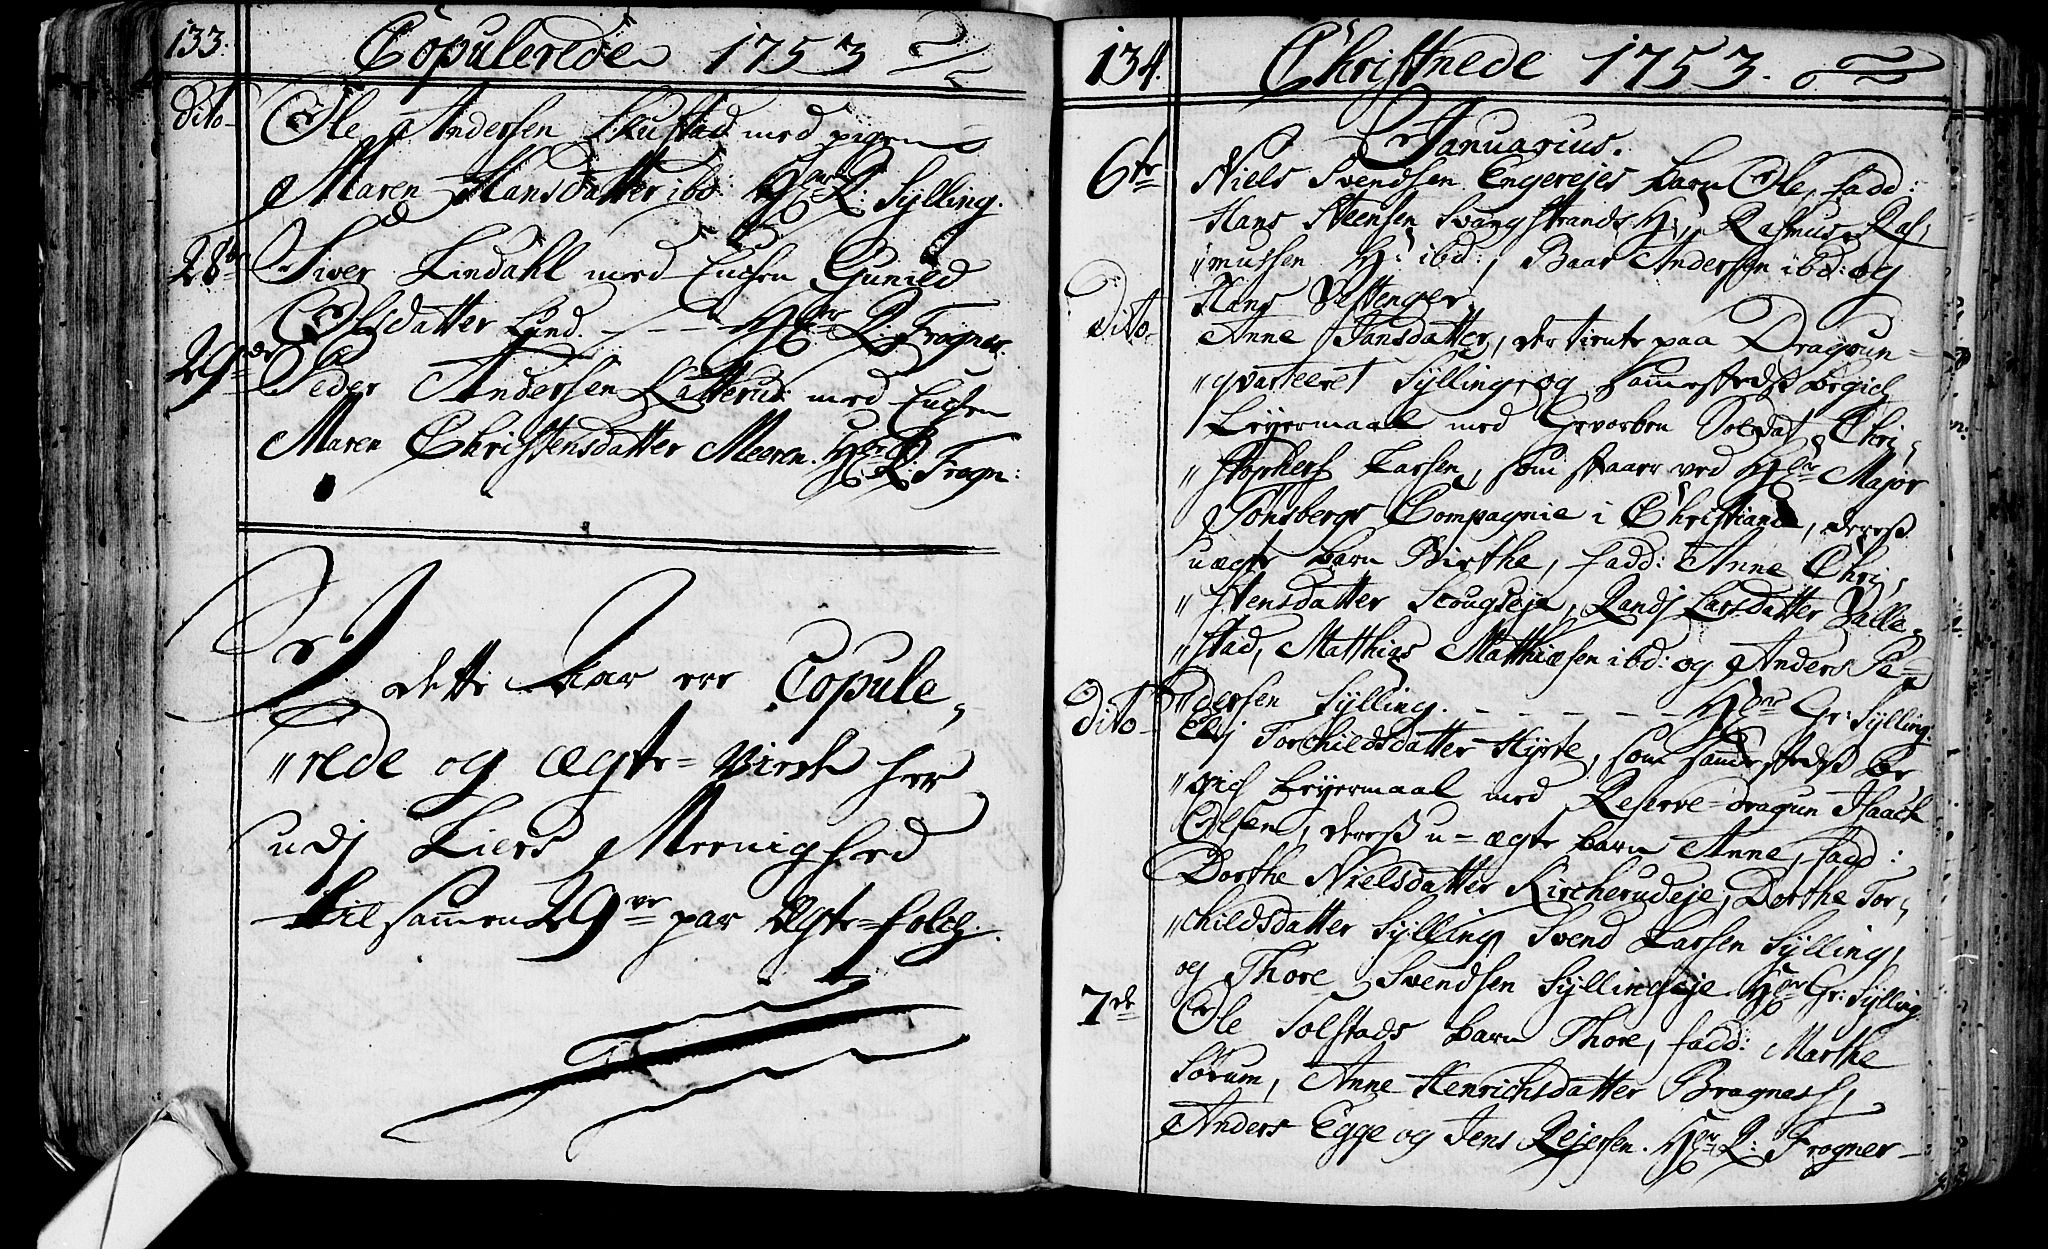 133.
Copulerede 1753
Dito
Ole Andersen Skustad med pigen
Maren Hansdatter ibd: Hr R: Sylling.
28de
Siver Lindahl med Enchen Gunild
Olsdatter Lund. - - - Hr R: Frogner.
29de
Peder Andersen Katterud med Enchen
Maren Christensdatter Meeren. Hr R Frogn:
I dette Aar ere Copule,
"rede og ægte=viede her
udj Liers Meenighed
til samen 29ve par Ægte=folch.
134.
Christnede 1753.
Januarius.
6te
Niels Svendsen Engerejes barn Ole, fadd:
Hans Steensen Svangstrands H:, Rasmus Ras,
"mussen H: ibd:, Baar Andersen ibd: og
Hans Vettenger.
Dito
Anne Hansdatter, der tiente paa Dragoun=
"qvarteeret Sylling, og sammestedß begich
Leyermaal med Gevorben Soldat Chri,
"stopher Larsen, som staar ved Hr Major
Tønsbergs Compagnie i Christiania, dereß
uægte barn Birthe, fadd: Anne Chri,
"stensdatter Scougseje, Randj Larsdatter Valle,
"stad, Matthias Matthiæsen ibd: og Anders Pe=
"dersen Sylling. - - - - - Hr Gr: Sylling.
dito
Eli Torchildsdatter Hÿrte, som sammestedß be
"gich Leyermaal med Reserve=dragun Isaach
Olsen, dereß u=ægte barn Anne, fadd:
Dorthe Nielsdatter Kircherudeje, Dorthe Tor,
"childsdatter Sylling, Svend Larsen Sylling,
og Thore Svendsen Syllingseje. Hr Gr: Sylling
7de
Ole Solstads barn Thore, fadd: Marthe
Sørum, Anne Henrichsdatter Bragness,
Anders Egge og Jens Rejersen. Hr R: Frogner-